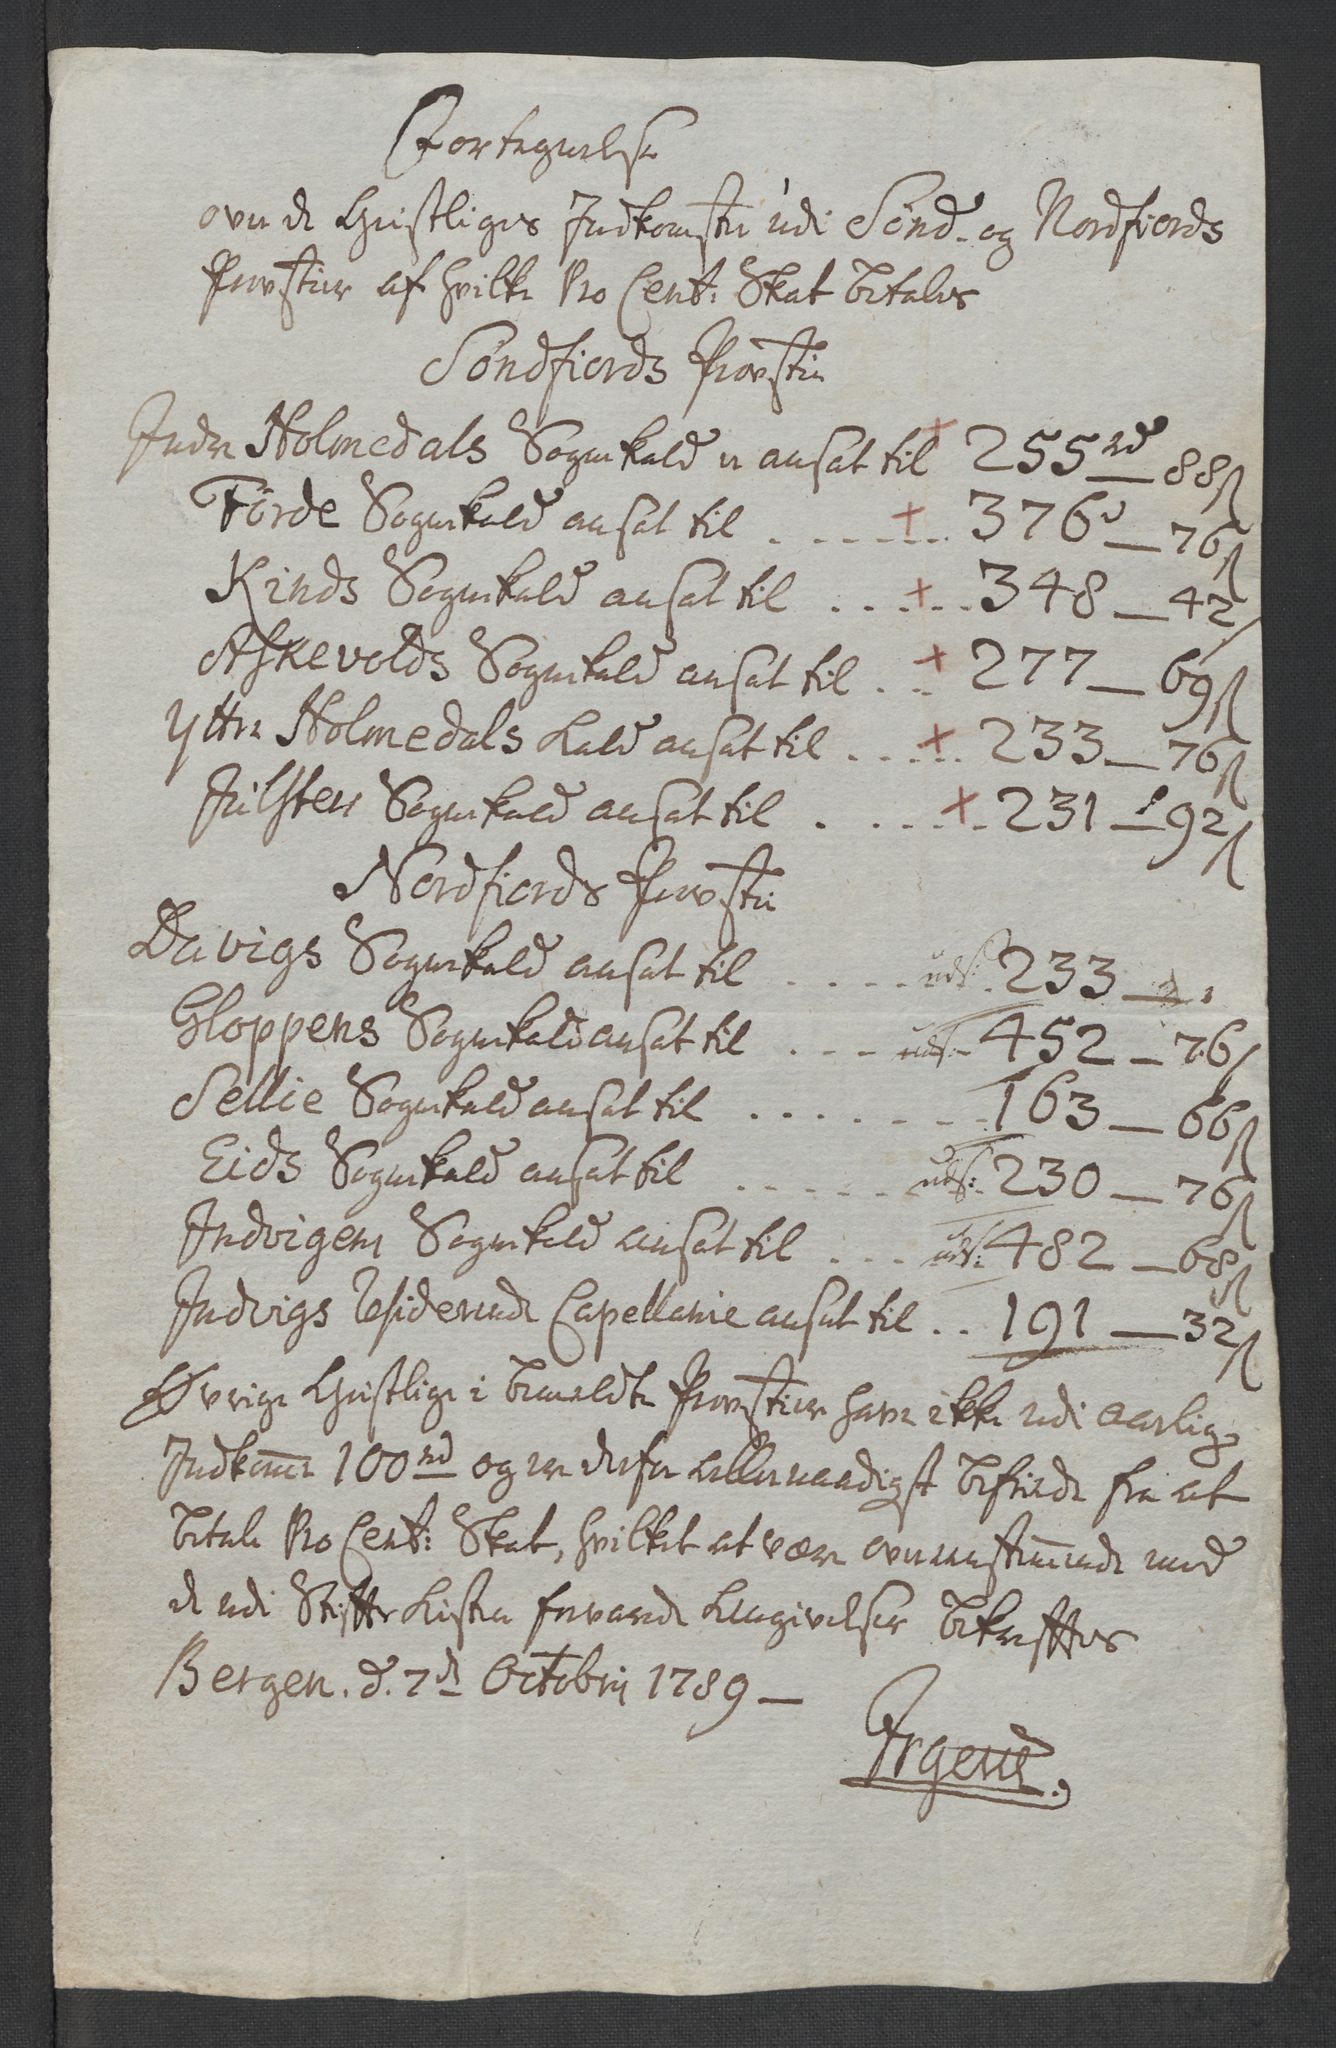 Fortegnelse
over de Geistliges Indkomster udi Sönd- og Nordfiords
Provstier af hvilke Pro Cent: Skat betales
Söndfiords Provstie
Indre Holmedals Sognekald er ansat til + 255 rd — 88 ß
Förde Sognekald ansat til . . . . . + 376 d — 76 ß
Kinds Sognekald ansat til . . . + . . 348 — 42
Askevolds Sognekald ansat til . . + 277 — 69 ß
Yttre Holmedals Kald ansat til . . + . . 233 — 76 ß
Jülster Sognekald ansat til . . . . + . 231 — 92 ß
Nordfiords Provstie
Davigs Sognekald ansat til . . . . . uds: 233 —
Gloppens Sognekald ansat til . . . uds: 452 — 76 ß
Sellie Sognekald ansat til . . . . . . . . 163 — 66 ß
Eids Sognekald ansat til . . . . . uds: 230 — 76 ß
Indvigens Sognekald ansat til . . . uds: 482 — 68 ß
Indvigs residerende Capellanie ansat til . . 191 — 32 ß
Øvrige Geistlige i bemeldte Provstier have ikke udi aarlig
Indkomme 100 rd og ere derfor allernaadigst befriede fra at
betale Pro Cent: Skat, hvilket at være overeensstemmende med
de udi Stifts Kisten forvarede Angivelser bekræfftes
Bergen. d. 7de Octobris 1789 —
Irgens.